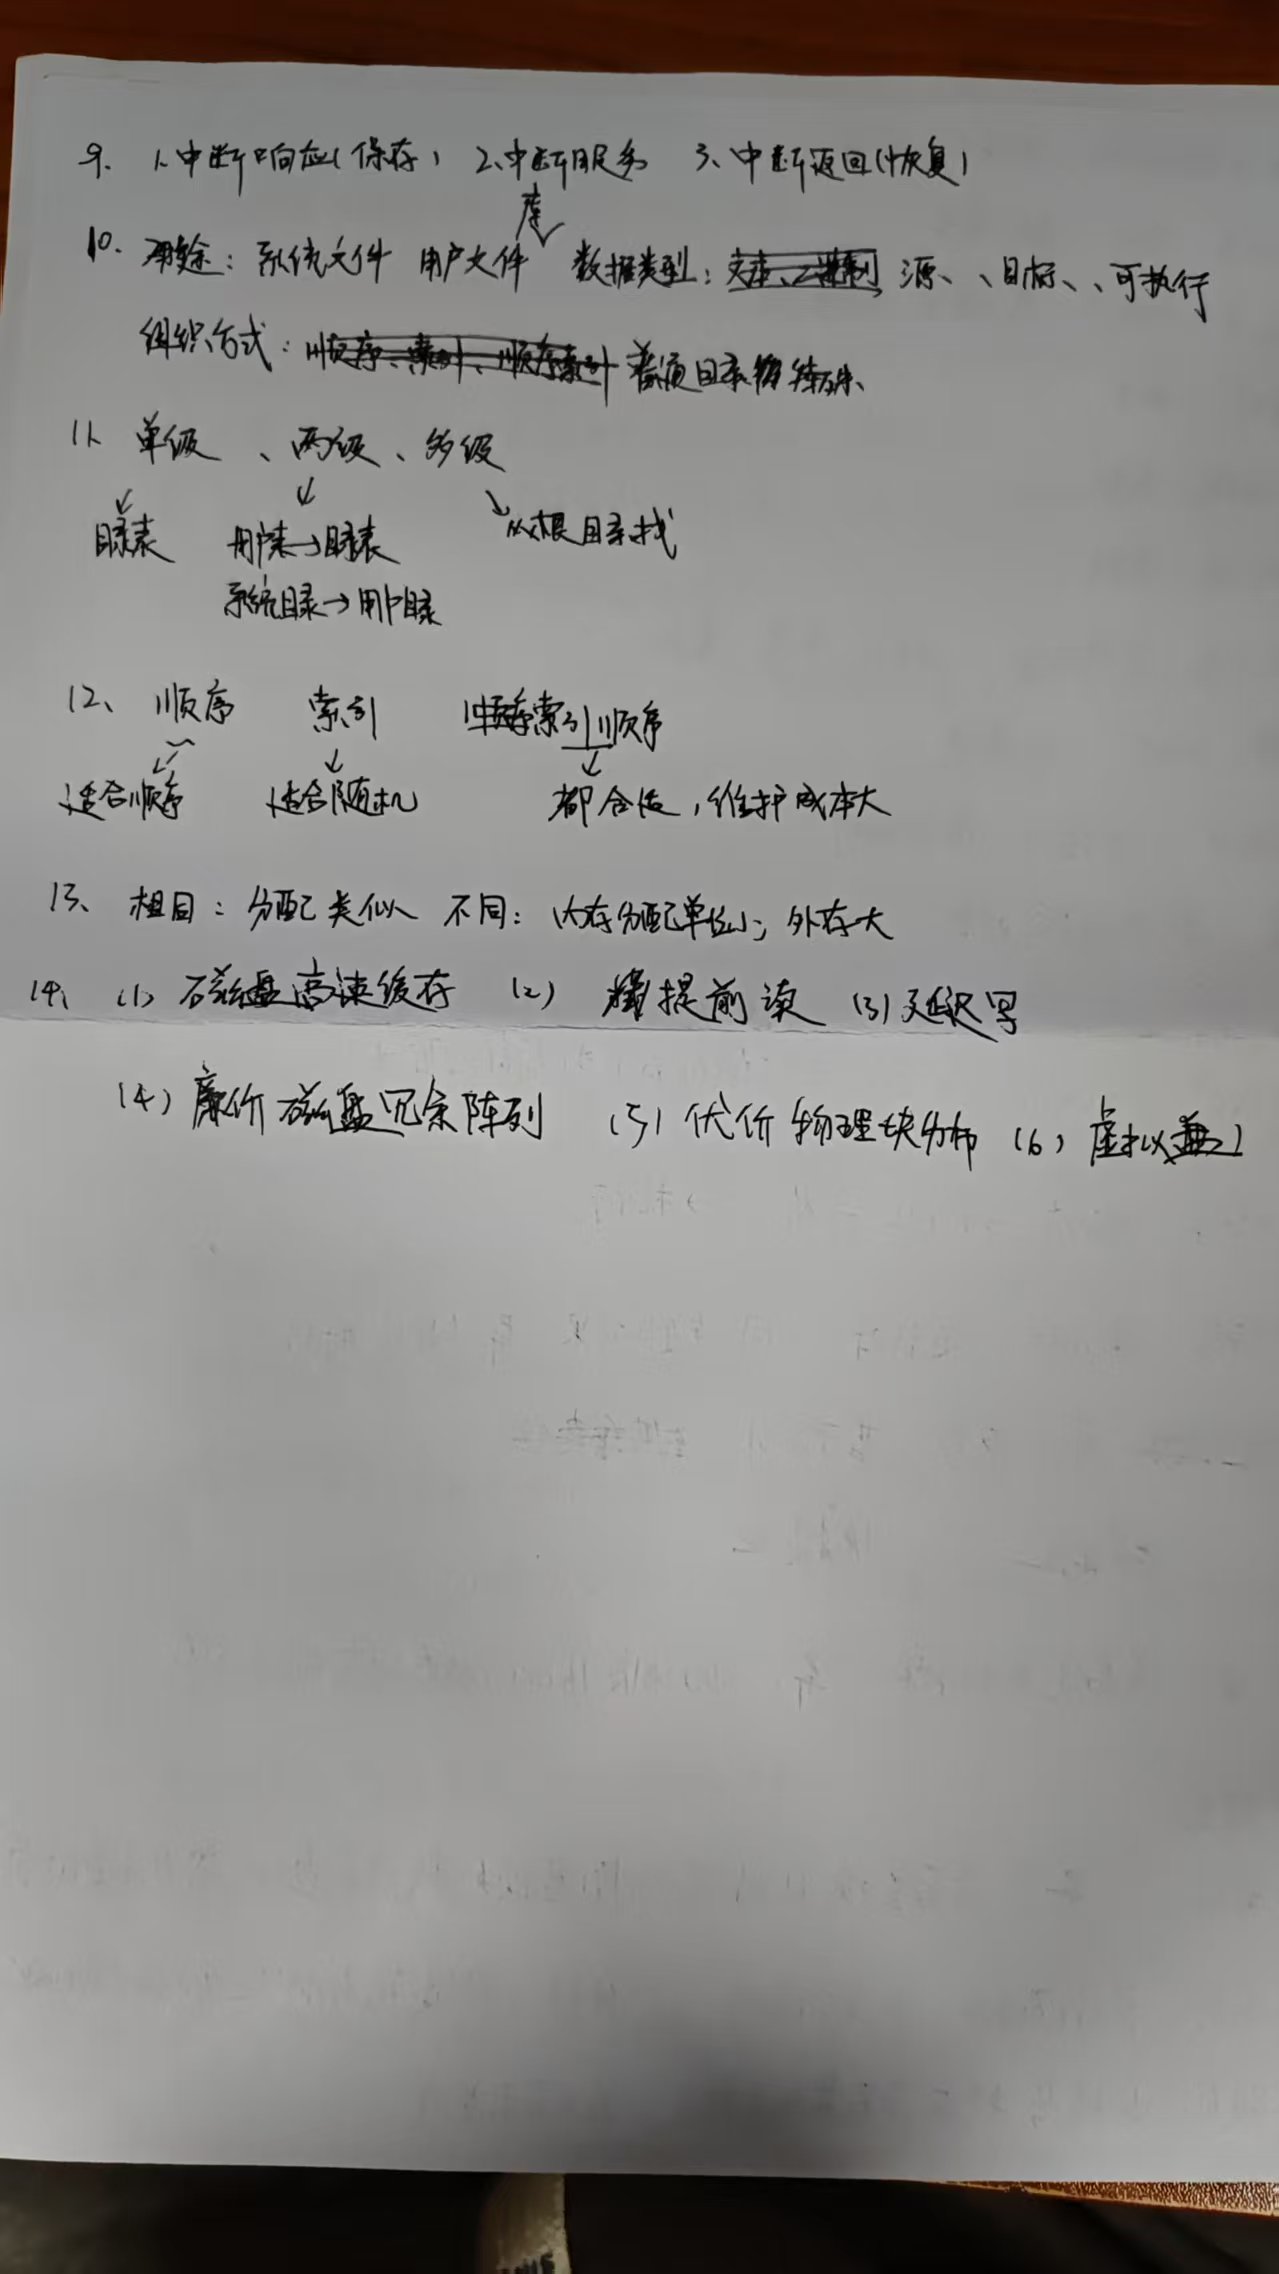 9. 1、中断响应(保存) 2、中断服务 3、中断返回(恢复)
10. 用途：系统文件 用户文件 库 数据类型： 源、、目标、、可执行
组织方式： 普通 目录 特殊、
11、单级 、两级 、多级
目录表 用户表→目录表 从根目录找
系统目录→用户目录
12、 顺序 索引 索引顺序
适合顺序 适合随机 都合适，维护成本大
13、 相同：分配类似 不同：内存分配单位小；外存大
14、 (1) 磁盘高速缓存 (2) 提前读 (3) 延迟写
(4) 廉价磁盘冗余阵列 (5) 优价物理块分布 (6) 虚拟盘